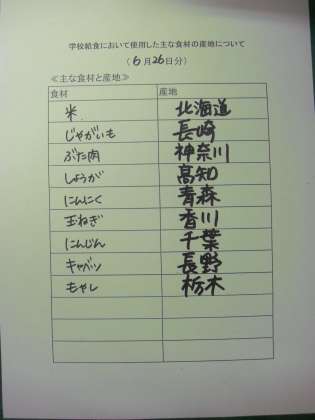 学校給食において使用した主な食材の産地について
(6月26日分)
≪主な食材と産地≫
食材 産地
米 北海道
じゃがいも 長崎
ぶた肉 神奈川
しょうが 高知
にんにく 青森
玉ねぎ 香川
にんじん 千葉
キャベツ 長野
もやし 栃木